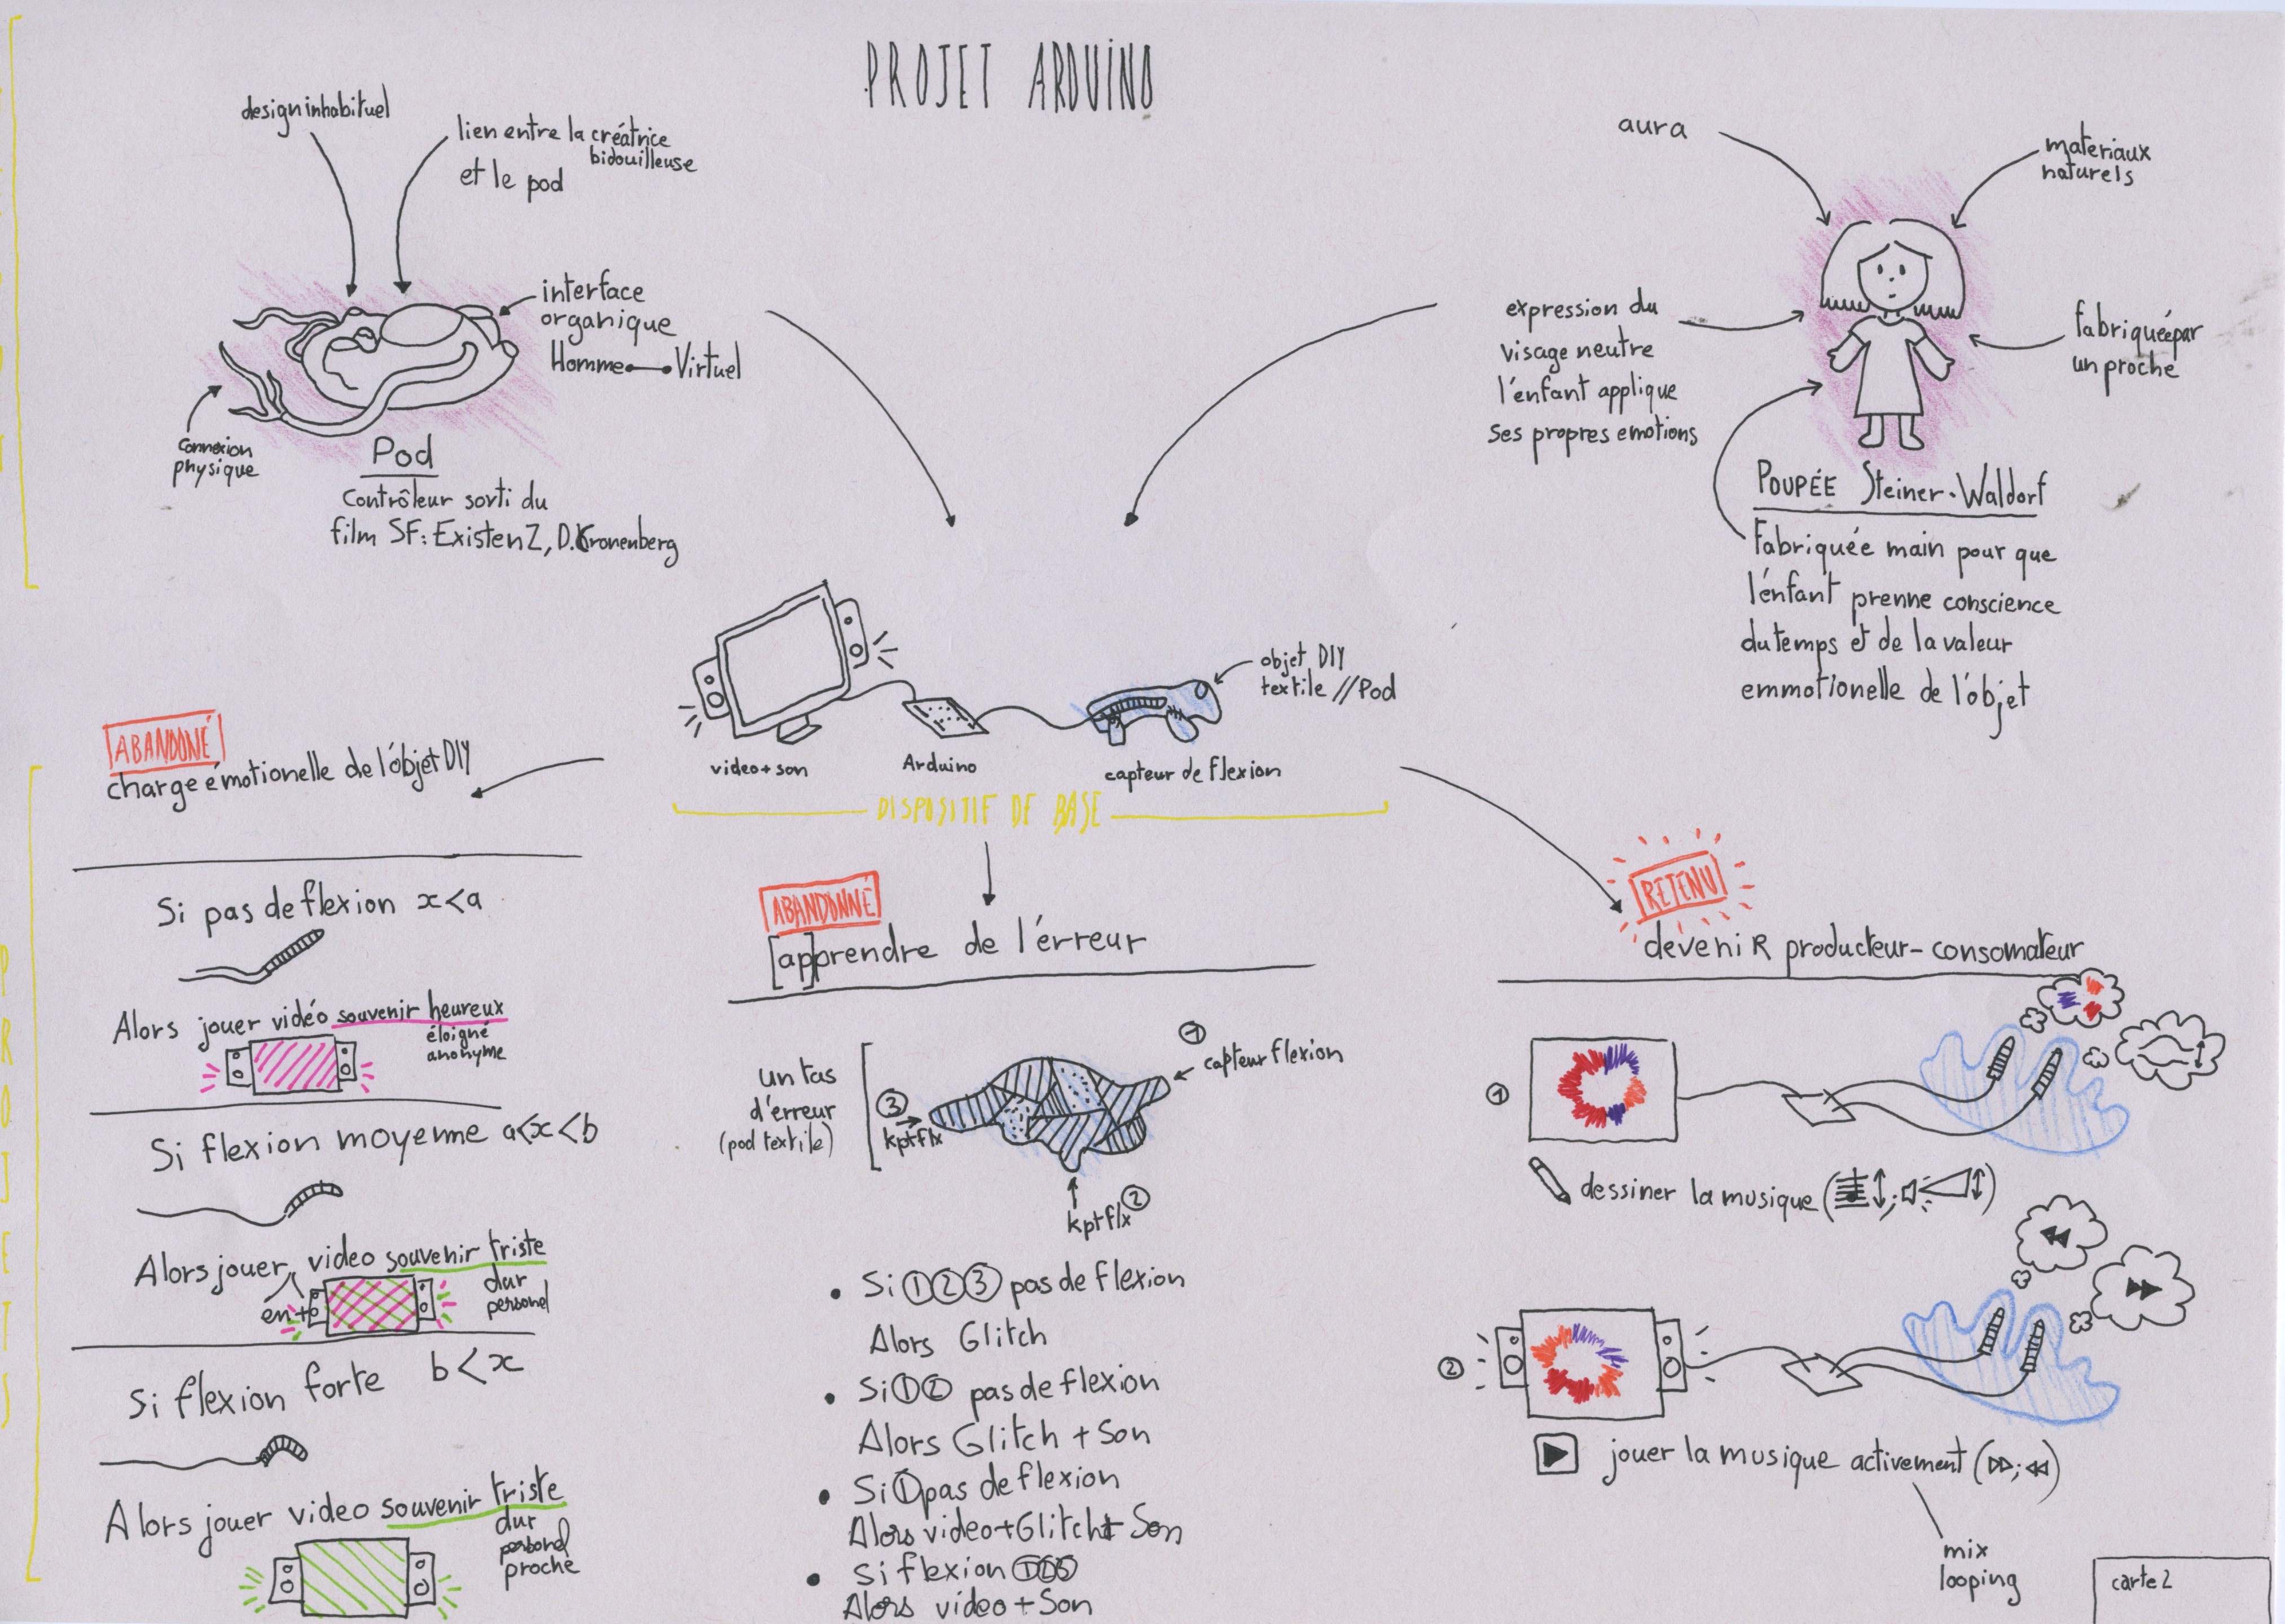 PROJET ARDUINO
design inhabituel
lien entre la créatrice
bidouilleuse
et le pod
interface
organique
Homme Virtuel
connexion
physique
Pod
Contrôleur sorti du
film SF: ExistenZ, D.Kronenberg
aura
materiaux
naturels
expression du
visage neutre
l'enfant applique
ses propres emotions
fabriquée par
un proche
POUPÉE Steiner-Waldorf
Fabriquée main pour que
l'enfant prenne conscience
du temps et de la valeur
emmotionelle de l'objet
objet DIY
textile // Pod
video + son
Arduino
capteur de flexion
DISPOSITIF DE BASE
ABANDONÉ
charge émotionelle de l'objet DIY
Si pas de flexion x<a
Alors jouer vidéo souvenir heureux
éloigné
anonyme
Si flexion moyenne a<x<b
Alors jouer video souvenir triste
en +
dur
personel
Si flexion forte b<x
Alors jouer video souvenir triste
dur
personel
proche
ABANDONNÉ
[ap]prendre de l'érreur
un tas
d'érreur
(pod textile)
① capteur flexion
③
kptflx
kptflx ②
• Si ①②③ pas de flexion
Alors Glitch
• Si ①② pas de flexion
Alors Glitch + Son
• Si ① pas de flexion
Alors video + Glitch + Son
• Si flexion ①②③
Alors video + Son
RETENU
deveniR producteur-consomateur
①
dessiner la musique
②
jouer la musique activement
mix
looping
carte 2
PROJETS